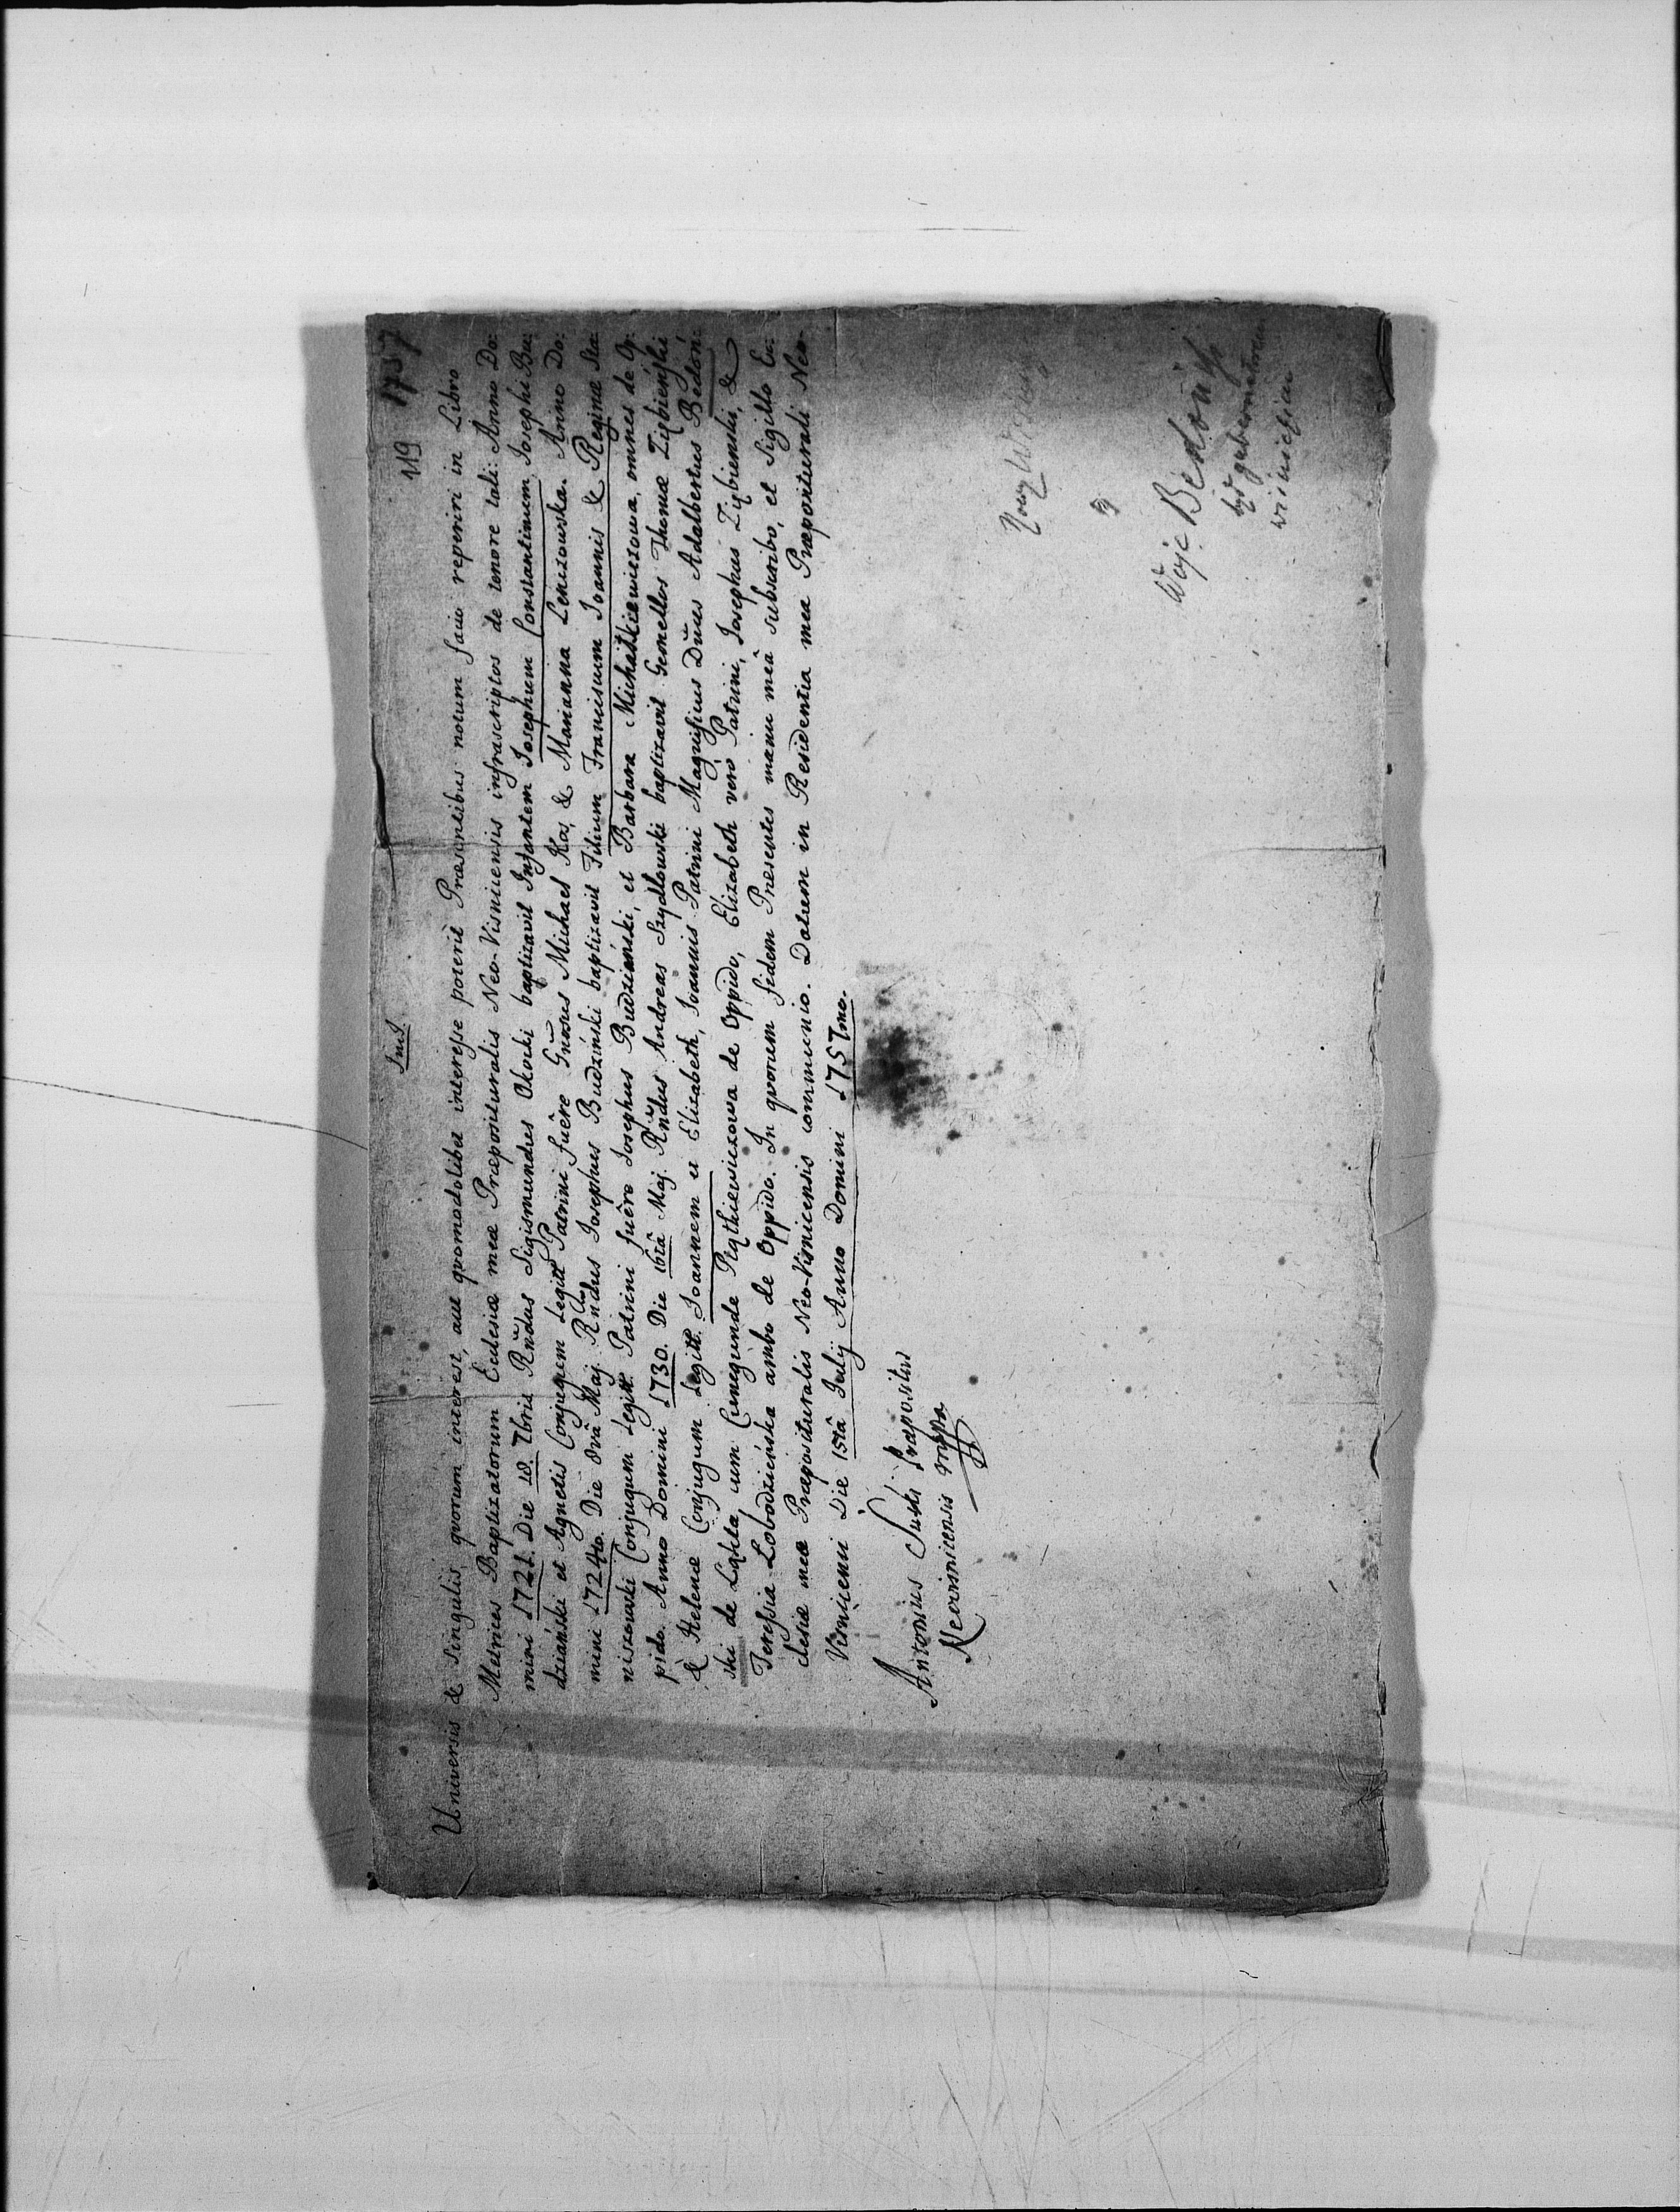 119 1757
Inst
Universis & Singulis quorum interest, aut quomodolibet interesse poterit Præsentibus notum facio reperiri in Libro
Metrices Baptizatorum Ecclesiæ meæ Præposituralis Neo-Visnicensis infrascriptos de tenore tali: Anno Do:
mini 1721. Die 18. 7bris Rndus Sigismundus Okocki baptizavit Infantem Josephum Constantinum Josephi Bu:
dziański et Agnetis Conjugum Legitt. Patrini fuêre Gnosus Michael Kos, & Marianna Lenczowska. Anno Do:
mini 1724to. Die 8vâ Maj. Rndus Josephus Budziński baptizavit Filium Franciscum Joannis & Reginæ Sta:
niszowski Conjugum Legitt. Patrini fuêre Josephus Budziański, et Barbara Michałkiewiczowa, omnes de Op:
pido. Anno Domini 1730. Die 16tâ Maj. Rndus Andreas Szydłowski baptizavit Gemellos Thomæ Ziębieński
& Helenæ Conjugum Legitt. Joannem et Elizabeth, Joannis Patrini Magnificus Dnus Adalbertus Bedoń:
ski de Łąkta, cum Cunegunde Piąthiewiczowa de Oppido, Elizabeth vero Patrini, Josephus Ziębienski, &
Teressia Łobodzieńska ambo de Oppido. In quorum fidem Presentes manu meâ subscribo, et Sigillo Ec:
clesiæ meæ Præposituralis Neo-Visnicensis communio. Datum in Residentia mea Præpositurali Neo-
Visnicensi Die 15tâ Julij Anno Domini 1757mo.
Antonius Suski Præpositus
Neovisnicensis mppa
Nowy Wiśnicz
Wojc Bedoński
był gubernatorem
wiśnickim